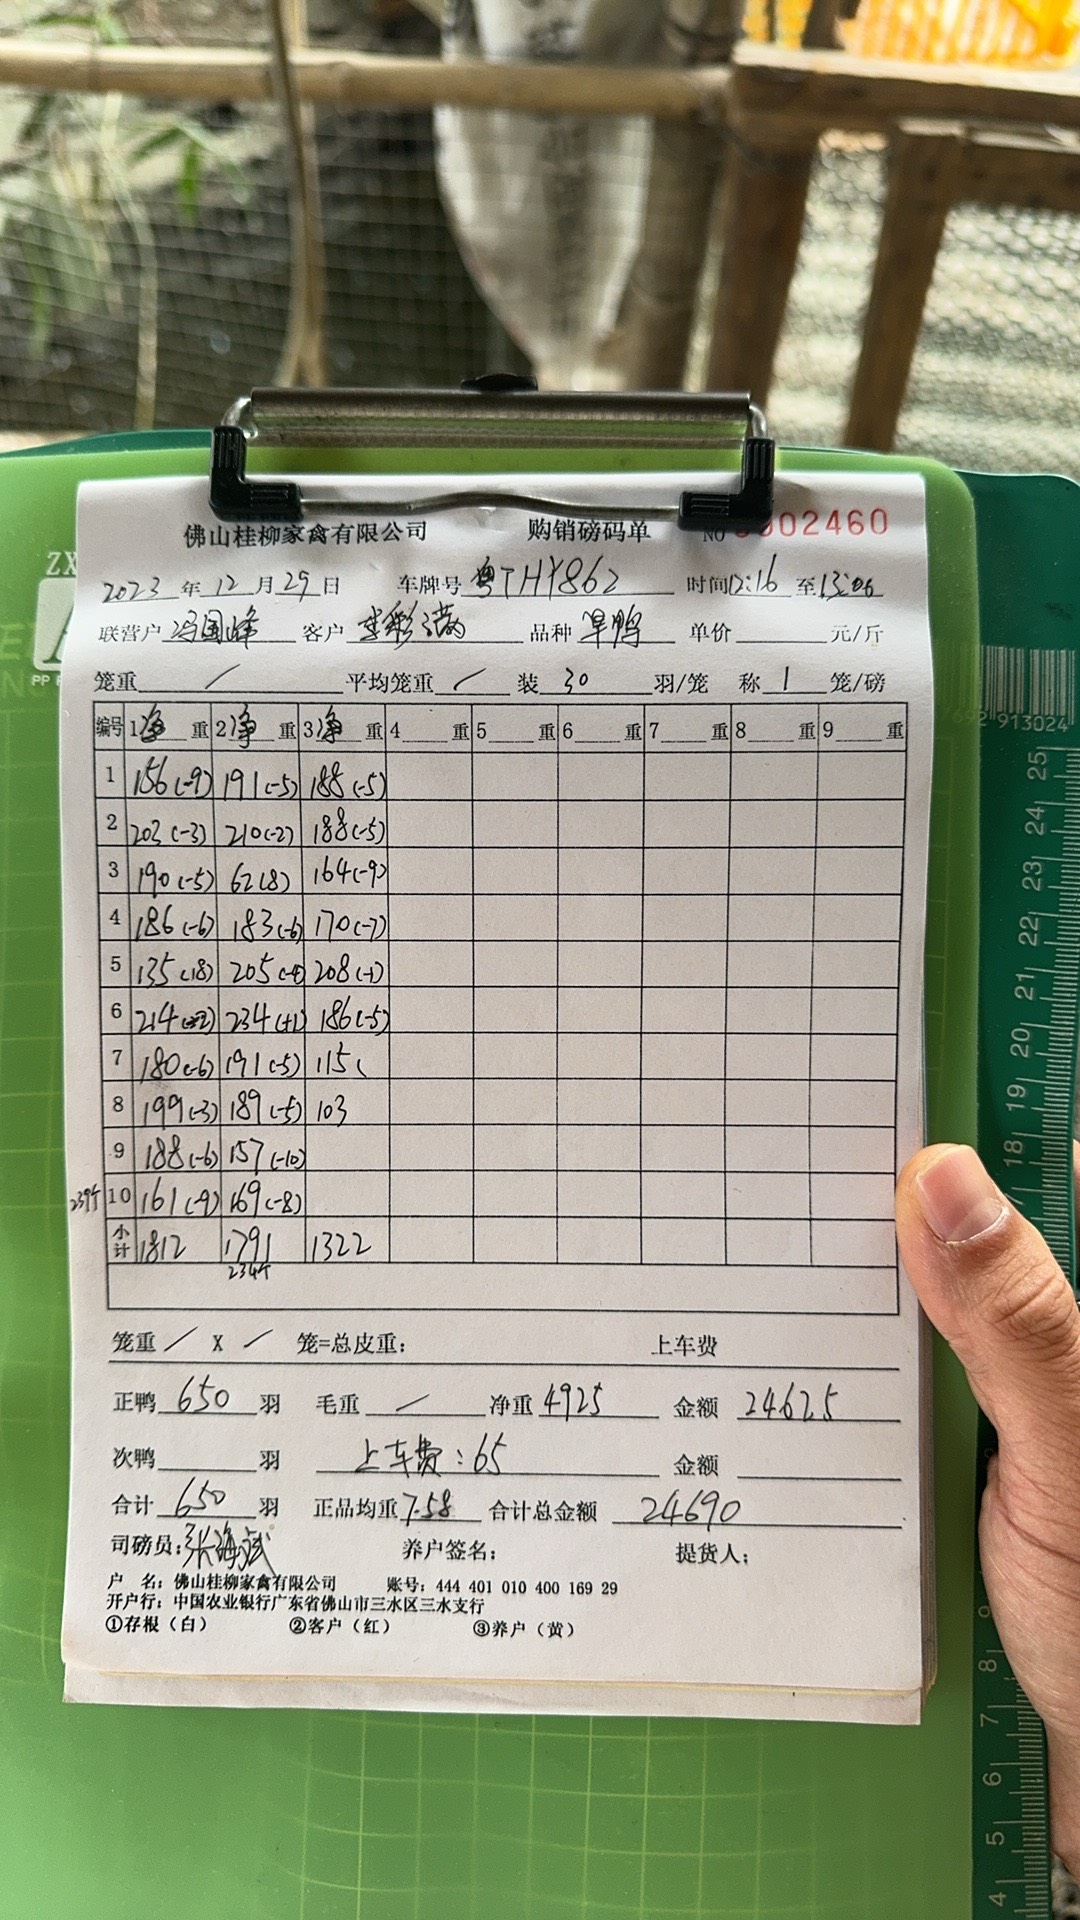 佛山桂柳家禽有限公司 购销磅码单 NO 0002460
2023 年 12 月 29 日 车牌号 粤THY862 时间 12:16 至 13:06
联营户 冯国峰 客户 李彩满 品种 旱鸭 单价 元/斤
笼重 / 平均笼重 / 装 30 羽/笼 称 1 笼/磅
编号 1 净 重 2 净 重 3 净 重 4 重 5 重 6 重 7 重 8 重 9 重
1 156(-9) 191(-5) 188(-5)
2 203(-3) 210(-2) 188(-5)
3 190(-5) 62(8) 164(-9)
4 186(-6) 183(-6) 170(-7)
5 135(18) 205(-4) 208(-1)
6 214 234(+1) 186(-5)
7 180(-6) 191(-5) 115(
8 199(-3) 189(-5) 103
9 188(-6) 157(-10)
239个 10 161(-9) 169(-8)
小计 1812 1791 1322
234个
笼重 / X / 笼=总皮重: 上车费
正鸭 650 羽 毛重 / 净重 4925 金额 24625
次鸭 羽 上车费:65 金额
合计 650 羽 正品均重 7.58 合计总金额 24690
司磅员: 养户签名: 提货人:
户 名: 佛山桂柳家禽有限公司 账号: 444 401 010 400 169 29
开户行: 中国农业银行广东省佛山市三水区三水支行
①存根(白) ②客户(红) ③养户(黄)
ZX
PP
913024
25
24
23
22
21
20
19
18
9
8
7
6
5
4